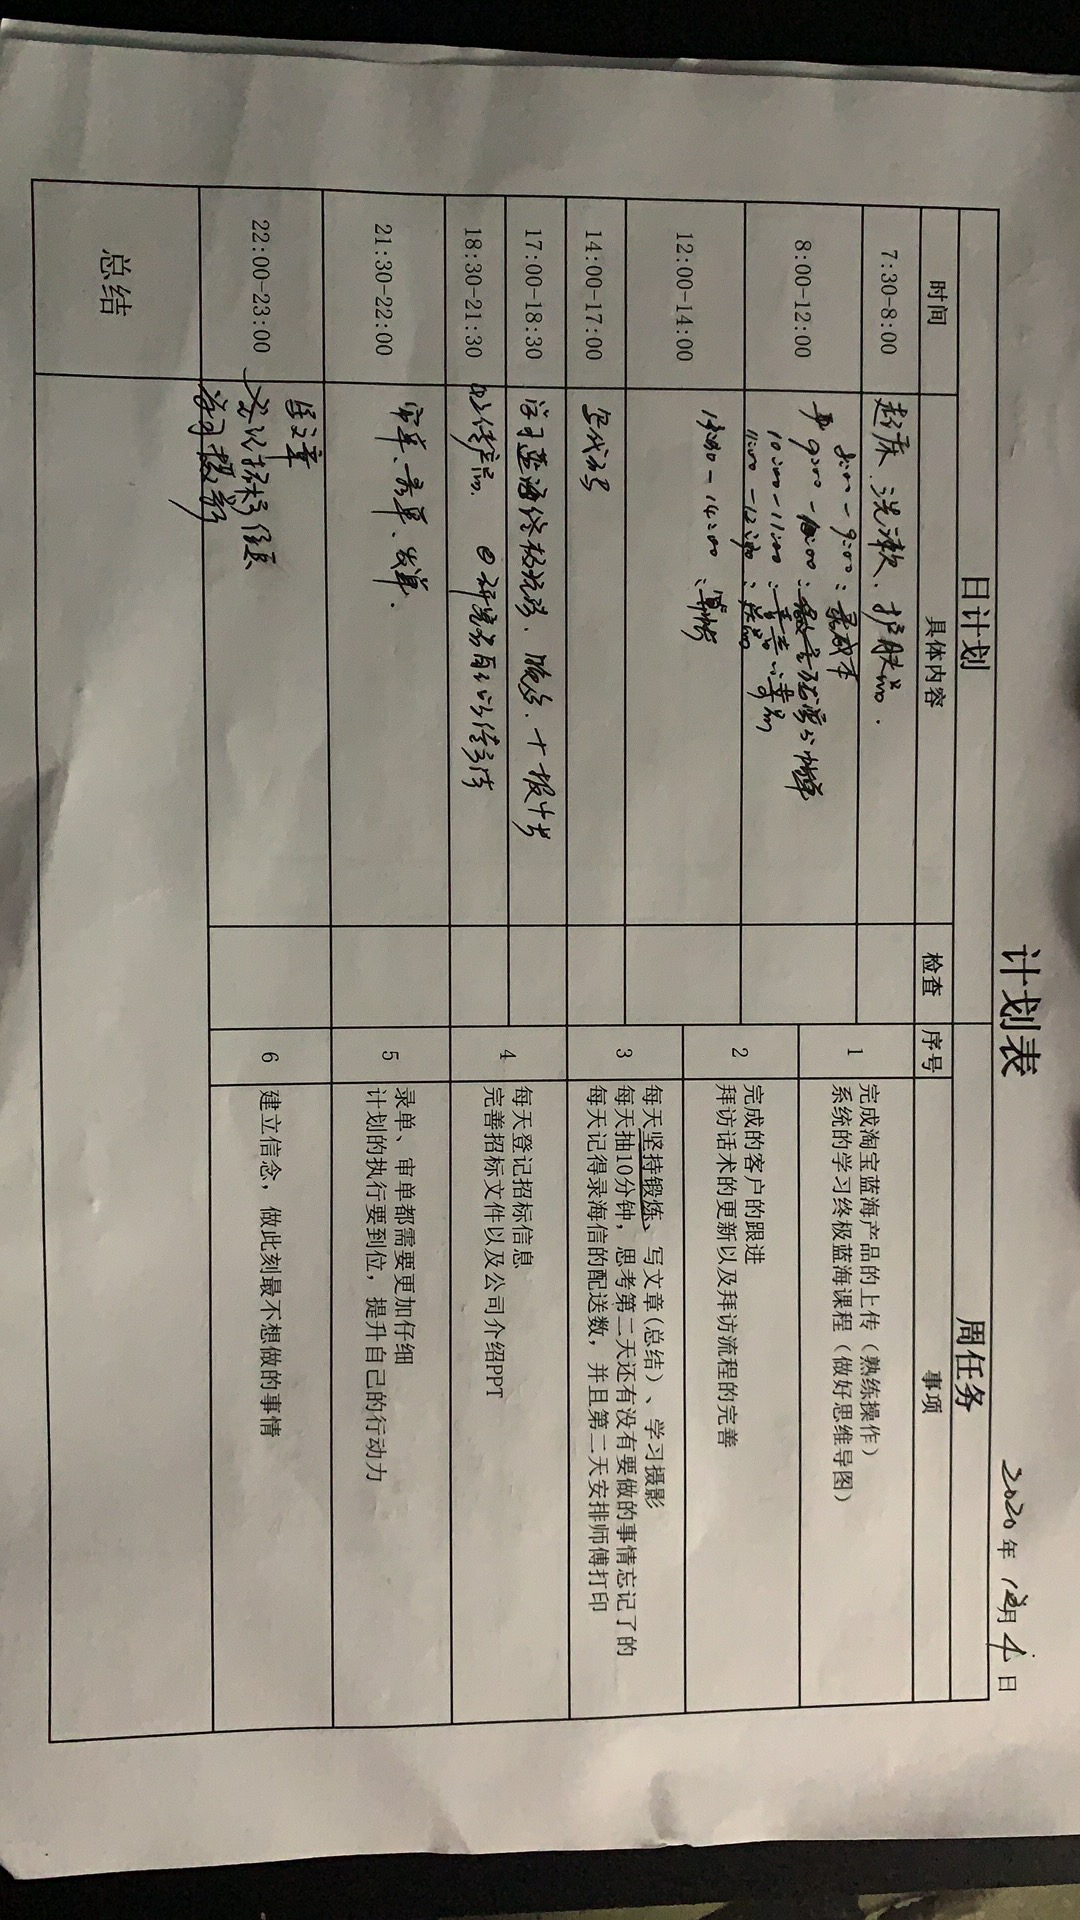 计划表
2020年12月4日
日计划
周任务
时间 具体内容 检查 序号 事项
7:30-8:00 起床、洗漱、护肤品.
8:00-12:00
8:00-9:00:录成本
9:00-10:00:
10:00-11:00:
11:00-12:00:
12:00-14:00
-14:00:算帐
14:00-17:00
17:00-18:30
18:30-21:30
21:30-22:00 审单、录单、发单.
22:00-23:00 写文章
登记招标信息
学习摄影
总结
1 完成淘宝蓝海产品的上传(熟练操作)
系统的学习终极蓝海课程(做好思维导图)
2 完成的客户的跟进
拜访话术的更新以及拜访流程的完善
3 每天坚持锻炼、写文章(总结)、学习摄影
每天抽10分钟,思考第二天还有没有要做的事情忘记了的
每天记得录海信的配送数,并且第二天安排师傅打印
4 每天登记招标信息
完善招标文件以及公司介绍PPT
5 录单、审单都需要更加仔细
计划的执行要到位,提升自己的行动力
6 建立信念,做此刻最不想做的事情